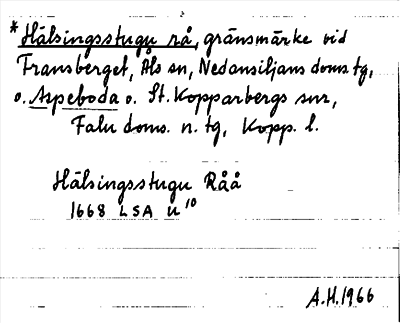 *Hälsingsstugu rå, gränsmärke vid
Fransberget, Åls sn, Nedansiljans doms. tg,
o. Aspeboda o. St. Kopparbergs snr,
Falu doms. n. tg, Kopp. l.
Hälsingsstugu Råå
1668 LSA U¹⁰
A.H. 1966